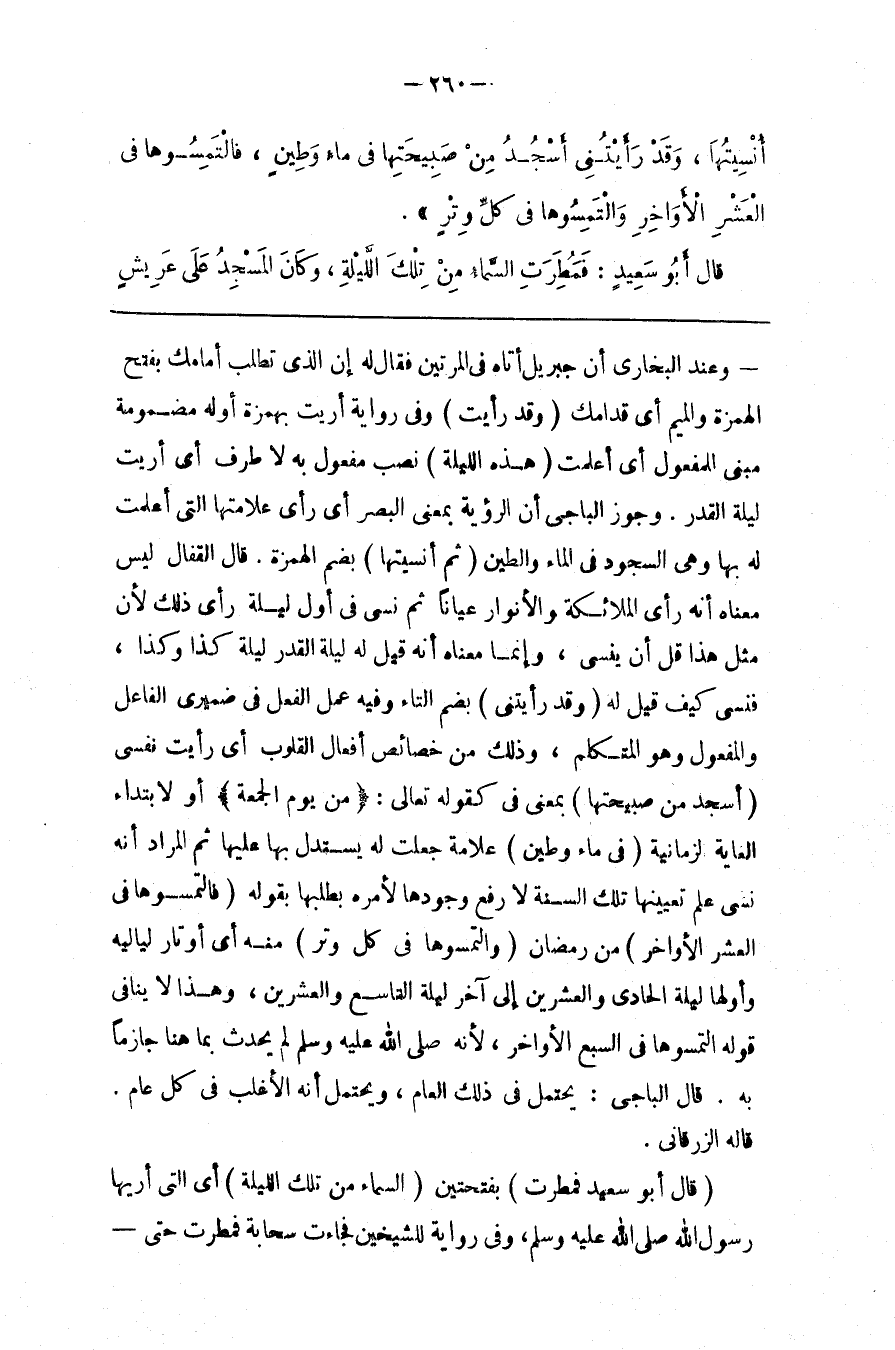 — ٢٦٠ —
أُنْسِيتُهَا ، وَقَدْ رَأَيْتُنِى أَسْجُدُ مِنْ صَبِيحَتِها فى ماءٍ وَطِينٍ ، فالْتَمِسُوها فى
الْعَشْرِ الْأَوَاخِرِ وَالْتَمِسُوها فى كلِّ وِتْرٍ » .
قال أَبُو سَعِيدٍ : فَمُطِرَتِ السَّماءُ مِنْ تِلْكَ اللَّيْلَةِ ، وكَانَ المَسْجِدُ عَلَى عَرِيشٍ
— وعند البخارى أن جبريل أتاه فى المرتين فقال له إن الذى تطلب أمامك بفتح
الهمزة والميم أى قدامك ( وقد رأيت ) وفى رواية أريت بهمزة أوله مضمومة
مبنى المفعول أى أعلمت ( هذه الليلة ) نصب مفعول به لا ظرف أى أريت
ليلة القدر . وجوز الباجى أن الرؤية بمعنى البصر أى رأى علامتها التى أعلمت
له بها وهى السجود فى الماء والطين ( ثم أنسيتها ) بضم الهمزة . قال القفال ليس
معناه أنه رأى الملائكة والأنوار عياناً ثم نسى فى أول ليلة رأى ذلك لأن
مثل هذا قل أن ينسى ، وإنما معناه أنه قيل له ليلة القدر ليلة كذا وكذا ،
فنسى كيف قيل له ( وقد رأيتنى ) بضم التاء وفيه عمل الفعل فى ضميرى الفاعل
والمفعول وهو المتكلم ، وذلك من خصائص أفعال القلوب أى رأيت نفسى
( أسجد من صبيحتها ) بمعنى فى كقوله تعالى : ﴿ من يوم الجمعة ﴾ أو لابتداء
الغاية الزمانية ( فى ماء وطين ) علامة جعلت له يستدل بها عليها ثم المراد أنه
نسى علم تعيينها تلك السنة لا رفع وجودها لأمره بطلبها بقوله ( فالتمسوها فى
العشر الأواخر ) من رمضان ( والتمسوها فى كل وتر ) منه أى أوتار لياليه
وأولها ليلة الحادى والعشرين إلى آخر ليلة التاسع والعشرين ، وهذا لا ينافى
قوله التمسوها فى السبع الأواخر ، لأنه صلى الله عليه وسلم لم يحدث بما هنا جازماً
به . قال الباجى : يحتمل فى ذلك العام ، ويحتمل أنه الأغلب فى كل عام .
قاله الزرقانى .
( قال أبو سعيد فمطرت ) بفتحتين ( السماء من تلك الليلة ) أى التى أريها
رسول الله صلى الله عليه وسلم، وفى رواية للشيخين فجاءت سحابة فمطرت حتى —